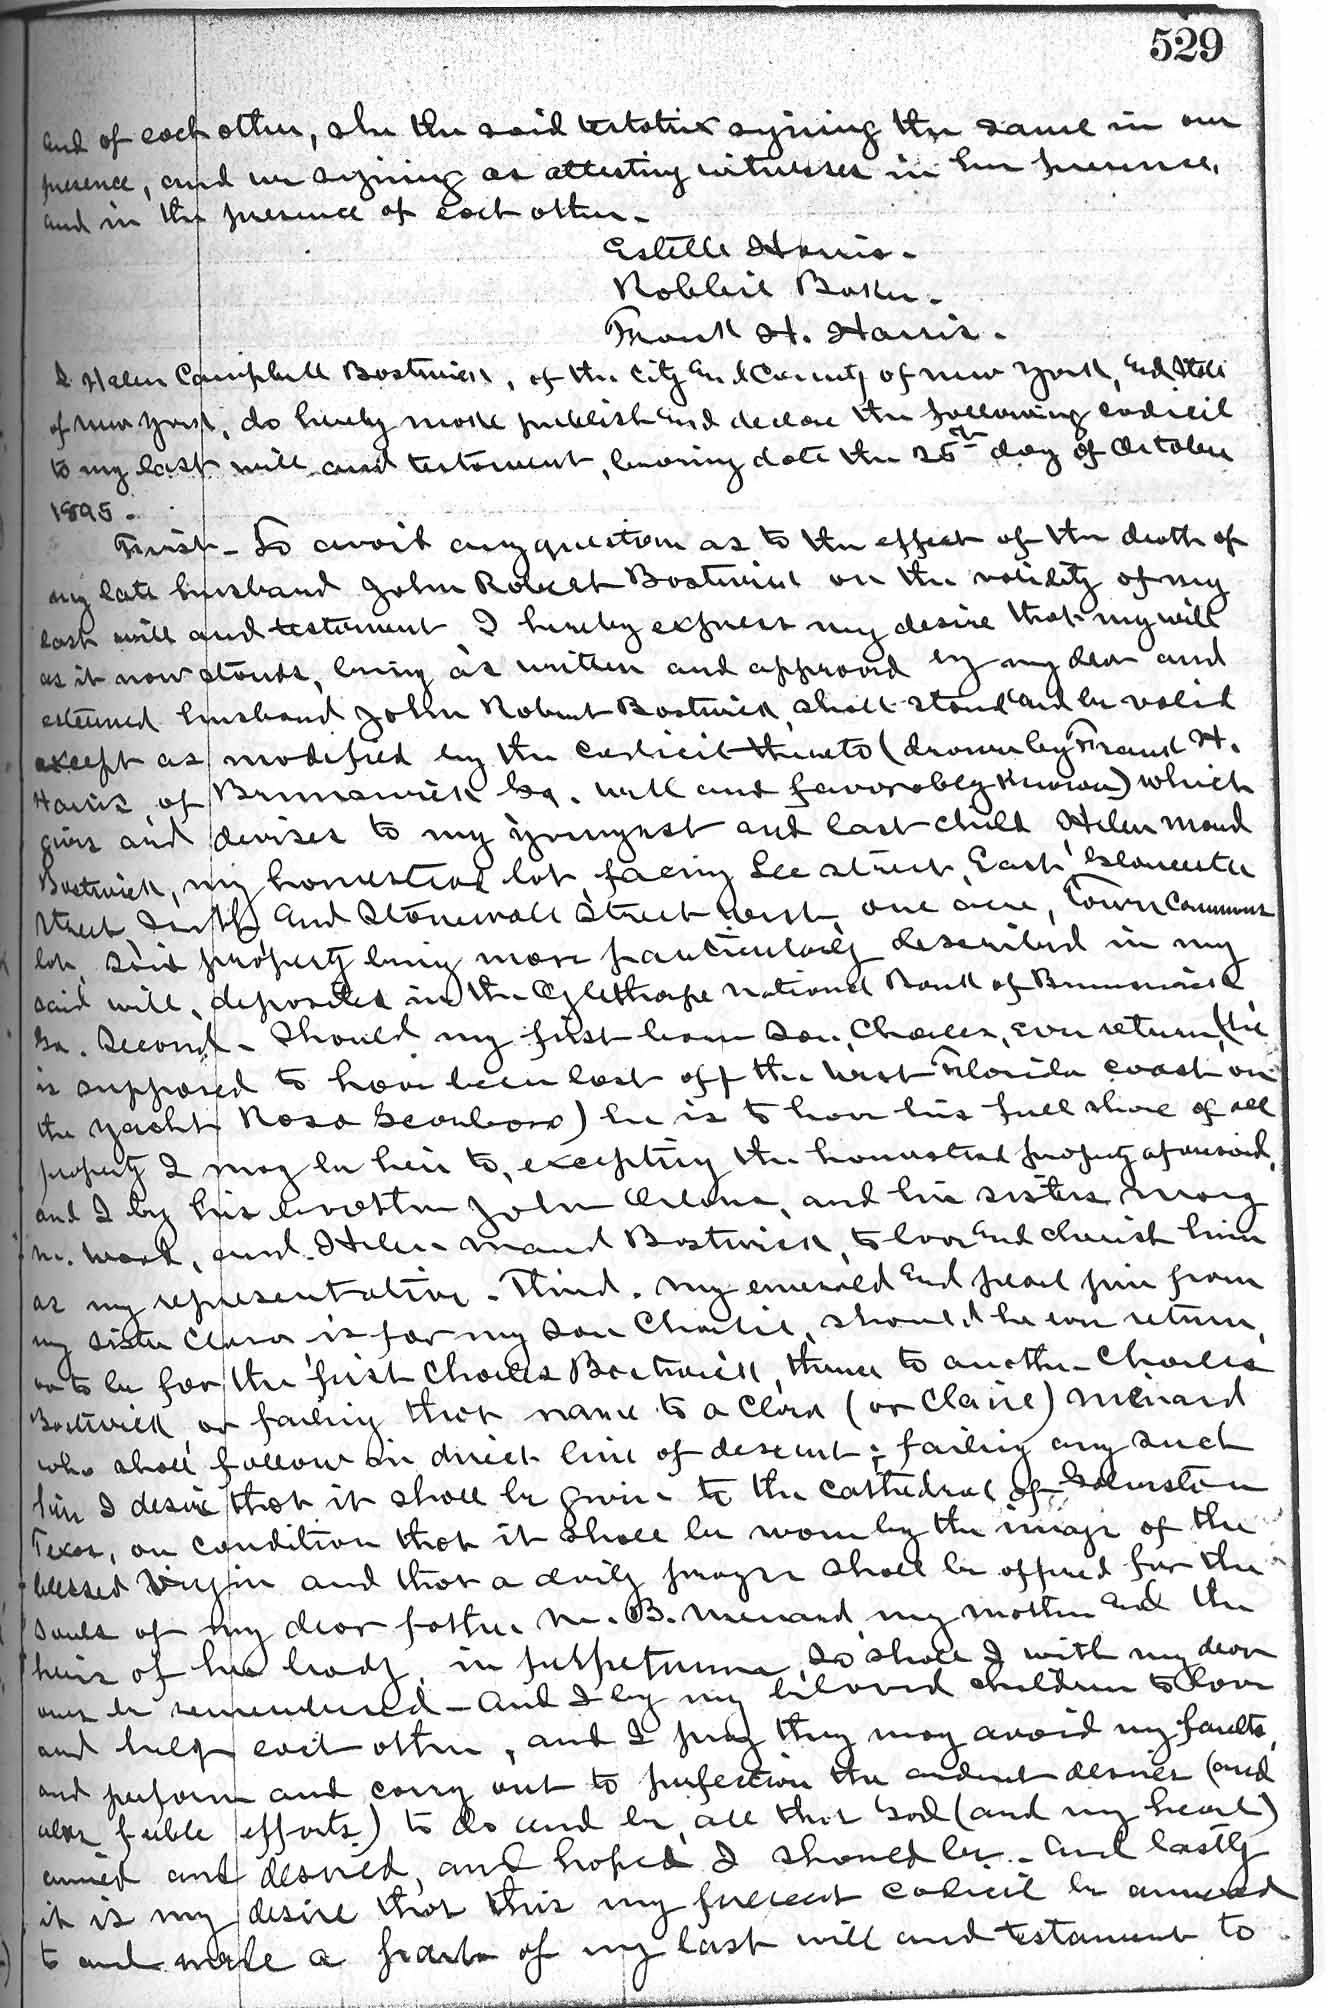 529
and of each other, she the said testatrix signing the same in our
presence, and we signing as attesting witnesses in her presence,
and in the presence of each other.
Estelle Harris.
Robbie Baker.
Frank H. Harris.
I Helen Campbell Bostwick, of the City and County of New York, and State
of New York, do hereby make publish and declare the following codicil
to my last will and testament, bearing date the 25th day of October
1895.
First - To avoid any question as to the effect of the death of
my late husband John Robert Bostwick on the validity of my
last will and testament I hereby express my desire that my will
as it now stands, being as written and approved by my dear and
esteemed husband John Robert Bostwick, shall stand and be valid
except as modified by the codicil thereto (drawn by Frank H.
Harris of Brunswick Ga. well and favorably known) which
gives and devises to my youngest and last child Helen Maud
Bostwick, my homestead lot, facing Lee street, East, Gloucester
Street South and Stonewall Street west, one acre, Town Commons
lot, said property being more particularly described in my
said will, deposited in the Oglethorpe National Bank of Brunswick
Ga. Second - Should my first born son, Charles, ever return, (he
is supposed to have been lost off the West Florida coast on
the yacht Rosa) he is to have his full share of all
property I may be heir to, excepting the homestead property aforesaid,
and I beg his brother John, and his sisters Mary
M. and Helen Maud Bostwick, to love and cherish him
as my representative. Third. My emerald and pearl pin from
my sister Clara, is for my son Charlie, should he ever return,
or to be for the first Charles Bostwick, thence to another Charles
Bostwick or failing that name to a Clara (or Claire) Menard
who shall follow in direct line of descent; failing any such
I desire that it shall be given to the Cathedral of Galveston
Texas, on condition that it shall be worn by the image of the
blessed Virgin and that a daily prayer shall be offered for the
souls of my dear father M. B. Menard, my mother and the
heirs of her body, in perpetuum, so shall I with my dear
ones be remembered - and I beg my beloved children to love
and help each other, and I pray they may avoid my faults,
and perform and carry out to perfection the ardent desires (and
alas feeble efforts) to do and be, all that God (and my heart)
and desired, and hoped I should be. And lastly
it is my desire that this my present codicil be annexed
to and made a part of my last will and testament to